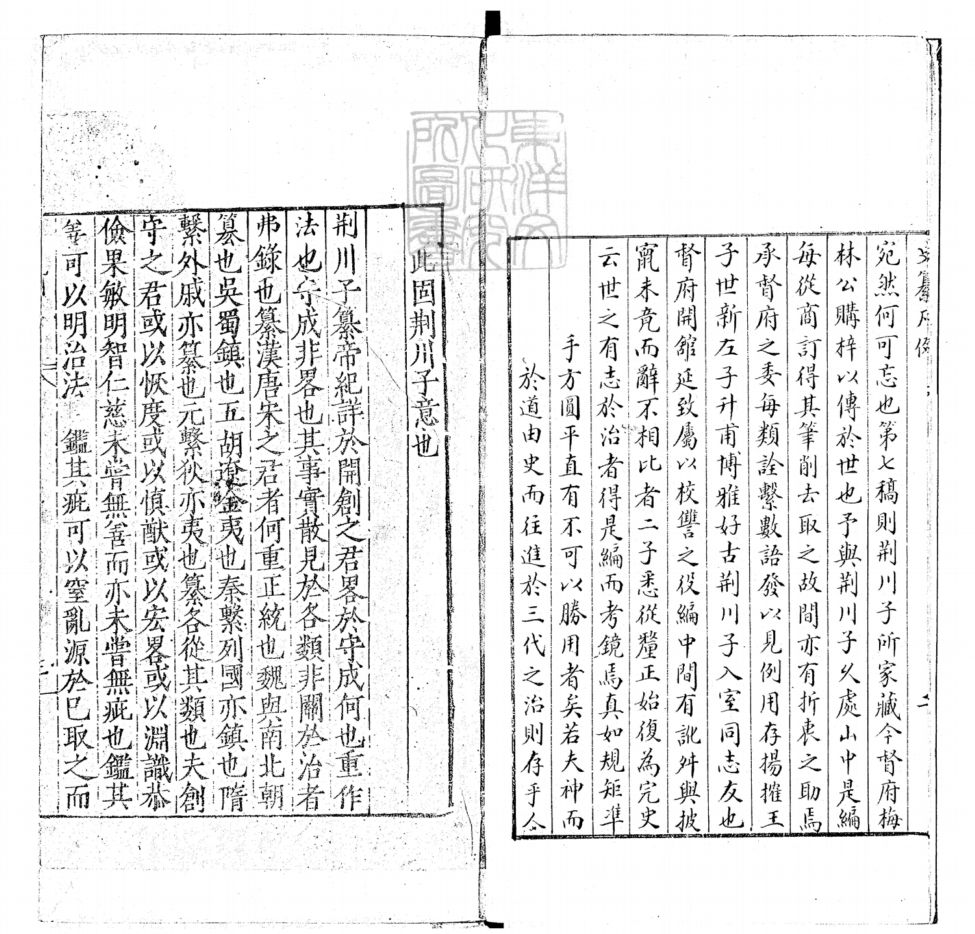 宛然何可忘也第七稿則荆川子所家藏今督府梅
林公購梓以傳於世也予與荆川子久處山中是編
每從商訂得其筆削去取之故間亦有折衷之助焉
承督府之委每類詮繫數語發以見例用存揚搉王
子世新左子升甫博雅好古荆川子入室同志友也
督府開舘延致屬以校讐之役編中間有訛舛與披
竄未竟而辭不相比者二子悉從釐正始復為完史
云世之有志於治者得是編而考鏡焉真如規矩準
手方圓平直有不可以勝用者矣若夫神而
於道由史而往進於三代之治則存乎人
此固荆川子意也
荆川子纂帝紀詳於開創之君畧於守成何也重作
法也守成非畧也其事實散見於各類非關於治者
弗錄也纂漢唐宋之君者何重正統也魏與南北朝
纂也吳蜀鎮也五胡遼金夷也秦繫列國亦鎮也隋
繫外戚亦纂也元繫狄亦夷也纂各從其類也夫創
守之君或以恢度或以慎猷或以宏畧或以淵識恭
儉果敏明智仁慈未嘗無善而亦未嘗無疵也鑑其
善可以明治法 鑑其疵可以窒亂源於巳取之而
東洋文化研究所圖書